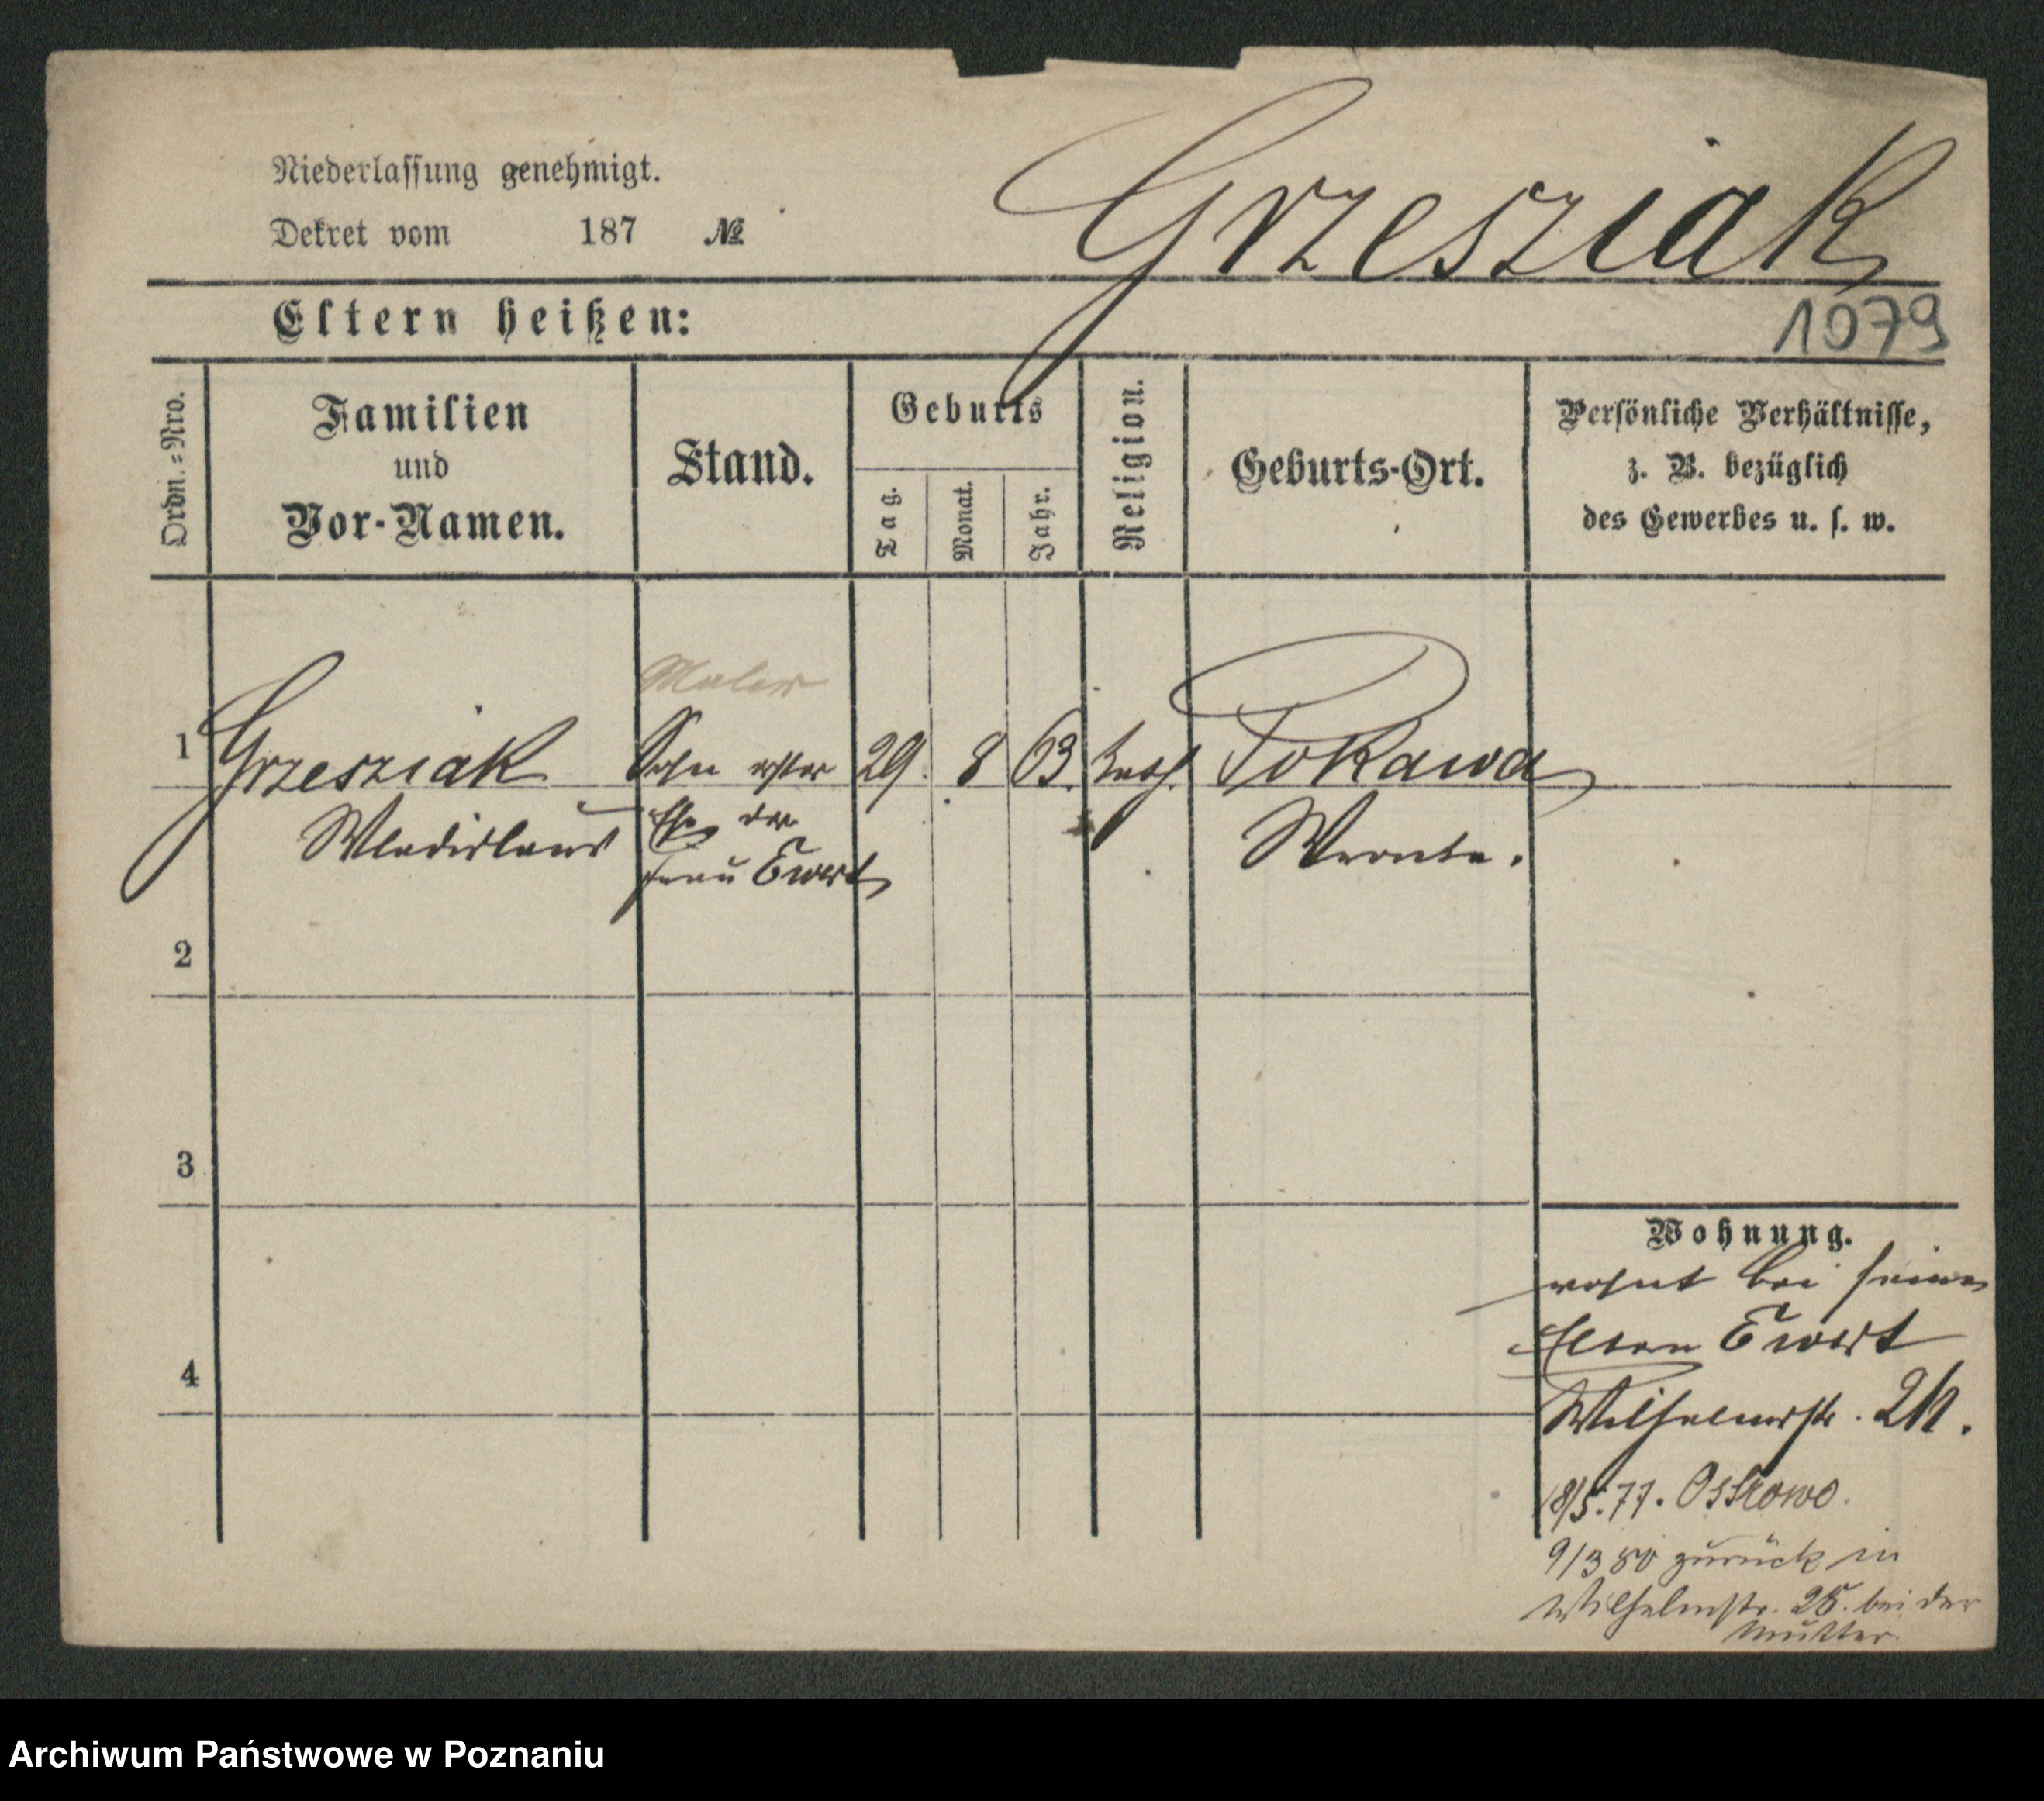 Niederlassung genehmigt.
Dekret vom 187 №
Grzesziak
Eltern heißen:
1079
Ordn.=Nro.
Familien
und
Vor-Namen.
Stand.
Geburts
Tag.
Monat.
Jahr.
Religion.
Geburts-Ort.
Persönliche Verhältnisse,
z. B. bezüglich
des Gewerbes u. s. w.
Maler
1 Grzesziak Sohn erster 29. 8 63. kath. Pokawa
Wladislaus Ehe der Wronke.
Frau Ewert
2
3
4
Wohnung.
wohnt bei seinen
Eltern Ewert
Wilhelmstr.
18/5.77. Ostrowo.
9/3 80 zurück in
Wilhelmstr. 25. bei der
Mutter.
Archiwum Państwowe w Poznaniu